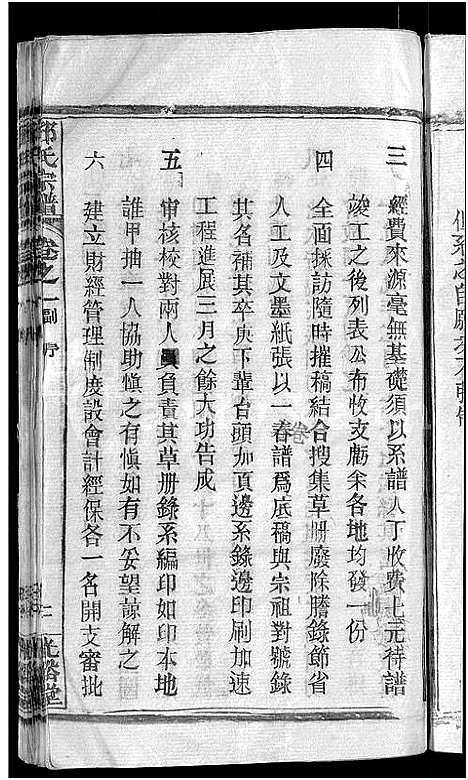 三 經費來源毫無基礎須以系譜人丁收費上元待譜
竣工之後列表公布收支虧余各地均發一份
四 全面採訪隨時摧稿結合搜集草册廢除謄錄節省
人工及文墨紙張以一春譜爲底稿與宗祖對號錄
卷
其名補其卒庚下輩台頭加頁邊系錄邊印刷加速
工程進展三月之餘大功告成
五 审核校對兩人員負責其草册錄系編印如印本地
誰甲抽一人協助慎之有慎如有不妥望諒解之
六 建立財經管理制度設會計經保各一名開支審批
氏宗譜 卷之一 副序
光裕堂